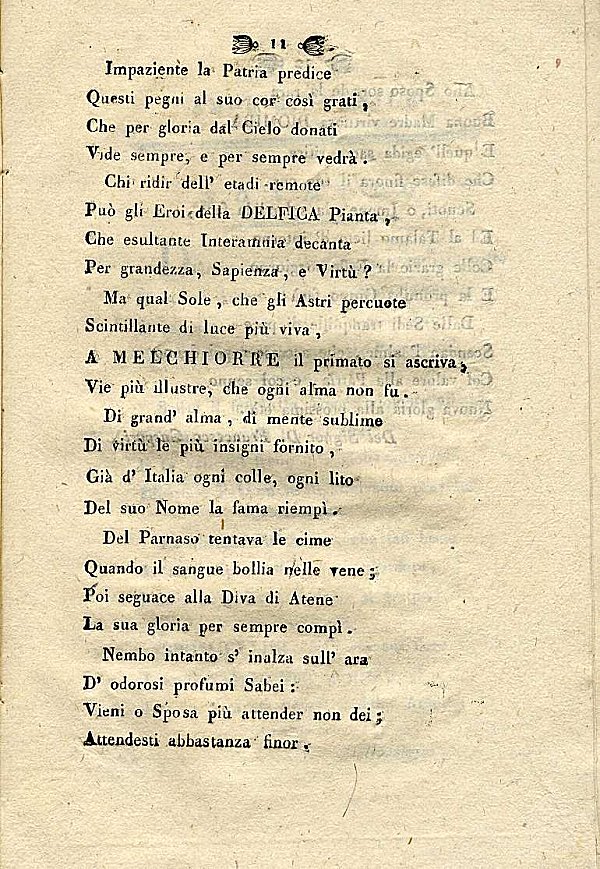 11
Impaziente la Patria predice
Questi pegni al suo cor così grati,
Che per gloria dal Cielo donati
Vide sempre, e per sempre vedrà.
Chi ridir dell' etadi remote
Può gli Eroi della DELFICA Pianta,
Che esultante Interamnia decanta
Per grandezza, Sapienza, e Virtù?
Ma qual Sole, che gli Astri percuote
Scintillante di luce più viva,
A MELCHIORRE il primato si ascriva,
Vie più illustre, che ogni alma non fu.
Di grand' alma, di mente sublime
Di virtù le più insigni fornito,
Già d' Italia ogni colle, ogni lito
Del suo Nome la fama riempì.
Del Parnaso tentava le cime
Quando il sangue bollia nelle vene;
Poi seguace alla Diva di Atene
La sua gloria per sempre compì.
Nembo intanto s' inalza sull' ara
D' odorosi profumi Sabei:
Vieni o Sposa più attender non dei;
Attendesti abbastanza finor.